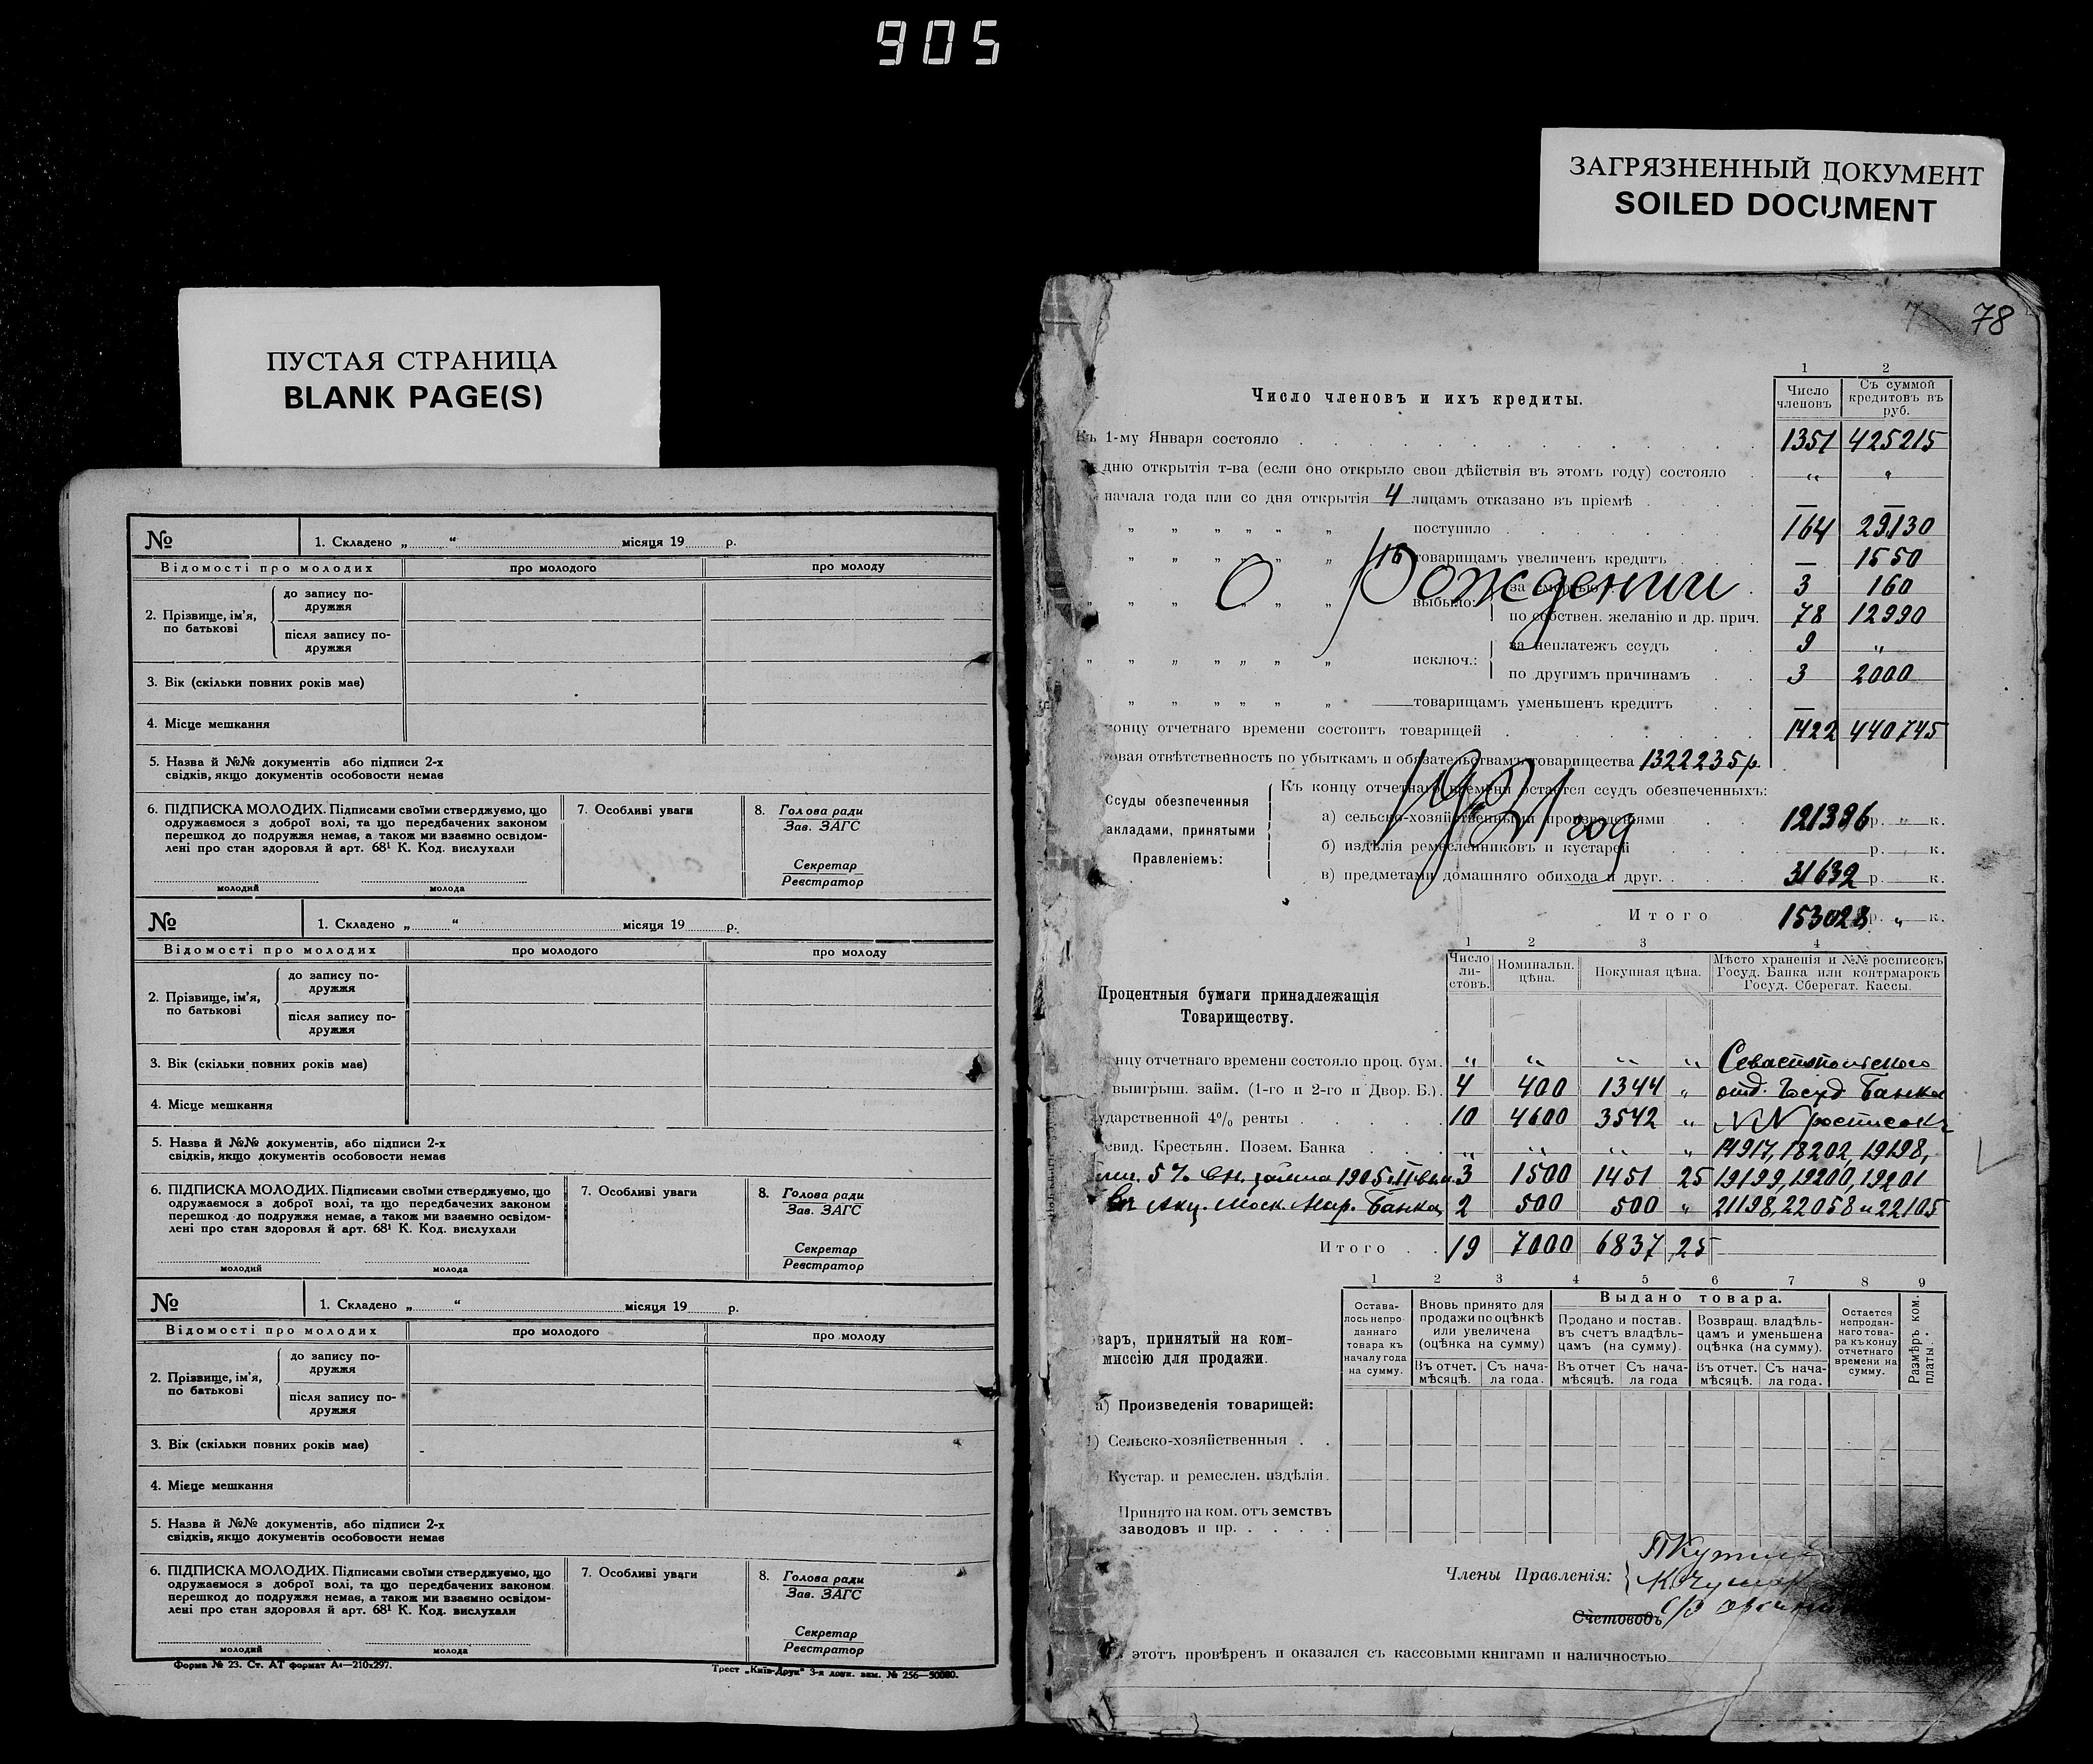 905
ЗАГРЯЗНЕННЫЙ ДОКУМЕНТ
SOILED DOCUMENT
ПУСТАЯ СТРАНИЦА
BLANK PAGE(S)
№ 1. Складено „ “ місяця 19 р.
Відомості про молодих про молодого про молоду
2. Прізвище, ім’я, по батькові
до запису по-
дружжя
після запису по-
дружжя
3. Вік (скільки повних років має)
4. Місце мешкання
5. Назва й №№ документів або підписи 2-х
свідків, якщо документів особовости немає
6. ПІДПИСКА МОЛОДИХ. Підписами своїми стверджуємо, що
одружаємося з доброї волі, та що передбачених законом
перешкод до подружжя немає, а також ми взаємно освідом-
лені про стан здоровля й арт. 68¹ К. Код. вислухали
молодий молода
7. Особливі уваги
8. Голова ради
Зав. ЗАГС
Секретар
Реєстратор
№ 1. Складено „ “ місяця 19 р.
Відомості про молодих про молодого про молоду
2. Прізвище, ім’я, по батькові
до запису по-
дружжя
після запису по-
дружжя
3. Вік (скільки повних років має)
4. Місце мешкання
5. Назва й №№ документів, або підписи 2-х
свідків, якщо документів особовости немає
6. ПІДПИСКА МОЛОДИХ. Підписами своїми стверджуємо, що
одружаємося з доброї волі, та що передбачених законом
перешкод до подружжя немає, а також ми взаємно освідом-
лені про стан здоровля й арт. 68¹ К. Код. вислухали
молодий молода
7. Особливі уваги
8. Голова ради
Зав. ЗАГС
Секретар
Реєстратор
№ 1. Складено „ “ місяця 19 р.
Відомості про молодих про молодого про молоду
2. Прізвище, ім’я, по батькові
до запису по-
дружжя
після запису по-
дружжя
3. Вік (скільки повних років має)
4. Місце мешкання
5. Назва й №№ документів, або підписи 2-х
свідків, якщо документів особовости немає
6. ПІДПИСКА МОЛОДИХ. Підписами своїми стверджуємо, що
одружаємося з доброї волі, та що передбачених законом
перешкод до подружжя немає, а також ми взаємно освідом-
лені про стан здоровля й арт. 68¹ К. Код. вислухали
молодий молода
7. Особливі уваги
8. Голова ради
Зав. ЗАГС
Секретар
Реєстратор
Форма № 23. Ст. АТ формат А₄—210x297. Трест „Київ-Друк“ 3-я друк. зам. № 256—50000.
78
1 2
Число членовъ и ихъ кредиты. Число членовъ Съ суммой кредитовъ въ руб.
Къ 1-му Января состояло 1351 425215
дню открытія т-ва (если оно открыло свои дѣйствія въ этомъ году) состояло „ „
начала года или со дня открытія 4 лицамъ отказано въ пріемѣ — —
„ „ „ „ „ „ поступило 164 29130
„ „ „ „ „ „ 16 товарищамъ увеличенъ кредитъ — 1550
О рождении
„ „ „ „ „ выбыло: за смертью 3 160
по собствен. желанію и др. прич. 78 12990
„ „ „ „ „ „ „ исключ.: за неплатежъ ссудъ 9 „
по другимъ причинамъ 3 2000
„ „ „ „ „ „ — товарищамъ уменьшенъ кредитъ —
онцу отчетнаго времени состоитъ товарищей 1422 440745
овая отвѣтственность по убыткамъ и обязательствамъ товарищества 1322235 р.
1931 год
Ссуды обезпеченныя
акладами, принятыми
Правленіемъ:
Къ концу отчетнаго времени остается ссудъ обезпеченныхъ:
а) сельско-хозяйственными произведеніями 121396 р. „ к.
б) издѣлія ремесленниковъ и кустарей р. к.
в) предметами домашняго обихода и друг. 31632 р. к.
Итого 153028 р. „ к.
1 2 3 4
Процентныя бумаги принадлежащія
Товариществу.
Число ли-стовъ. Номинальн. цѣна. Покупная цѣна. Мѣсто храненія и №№ росписокъ Госуд. Банка или контрмарокъ Госуд. Сберегат. Кассы.
нцу отчетнаго времени состояло проц. бум. „ „ „ „ Севастопольского
выигрыш. займ. (1-го и 2-го и Двор. Б.). 4 400 1344 „ отд. Госуд Банка
ударственной 4% ренты 10 4600 3542 „ NN росписокъ
евид. Крестьян. Позем. Банка „ „ „ „ 14917, 18202, 19198,
5% вн. займа 1905 г. II вып. 3 1500 1451 25 19199, 19200, 19201
Акц. Моск. Нар. Банка 2 500 500 „ 21198, 22058 и 22105
Итого 19 7000 6837 25
1 2 3 4 5 6 7 8 9
варъ, принятый на ком-
миссію для продажи.
Остава-лось непро-даннаго товара къ началу года на сумму.
Вновь принято для продажи по оцѣнкѣ или увеличена (оцѣнка на сумму)
Въ отчет. мѣсяцѣ. Съ нача-ла года.
Выдано товара.
Продано и постав. въ счетъ владѣль-цамъ (на сумму).
Въ отчет мѣсяцѣ. Съ нача-ла года
Возвращ. владѣль-цамъ и уменьшена оцѣнка (на сумму).
Въ отчет. мѣсяцѣ. Съ нача-ла года.
Остается непродан-наго това-ра къ концу отчетнаго времени на сумму.
Размѣръ ком. платы.
а) Произведенія товарищей:
1) Сельско-хозяйственныя
Кустар. и ремеслен. издѣлія.
Принято на ком. отъ земствъ
заводовъ и пр.
Члены Правленія:
Счетоводъ
этотъ провѣренъ и оказался съ кассовыми книгами и наличностью